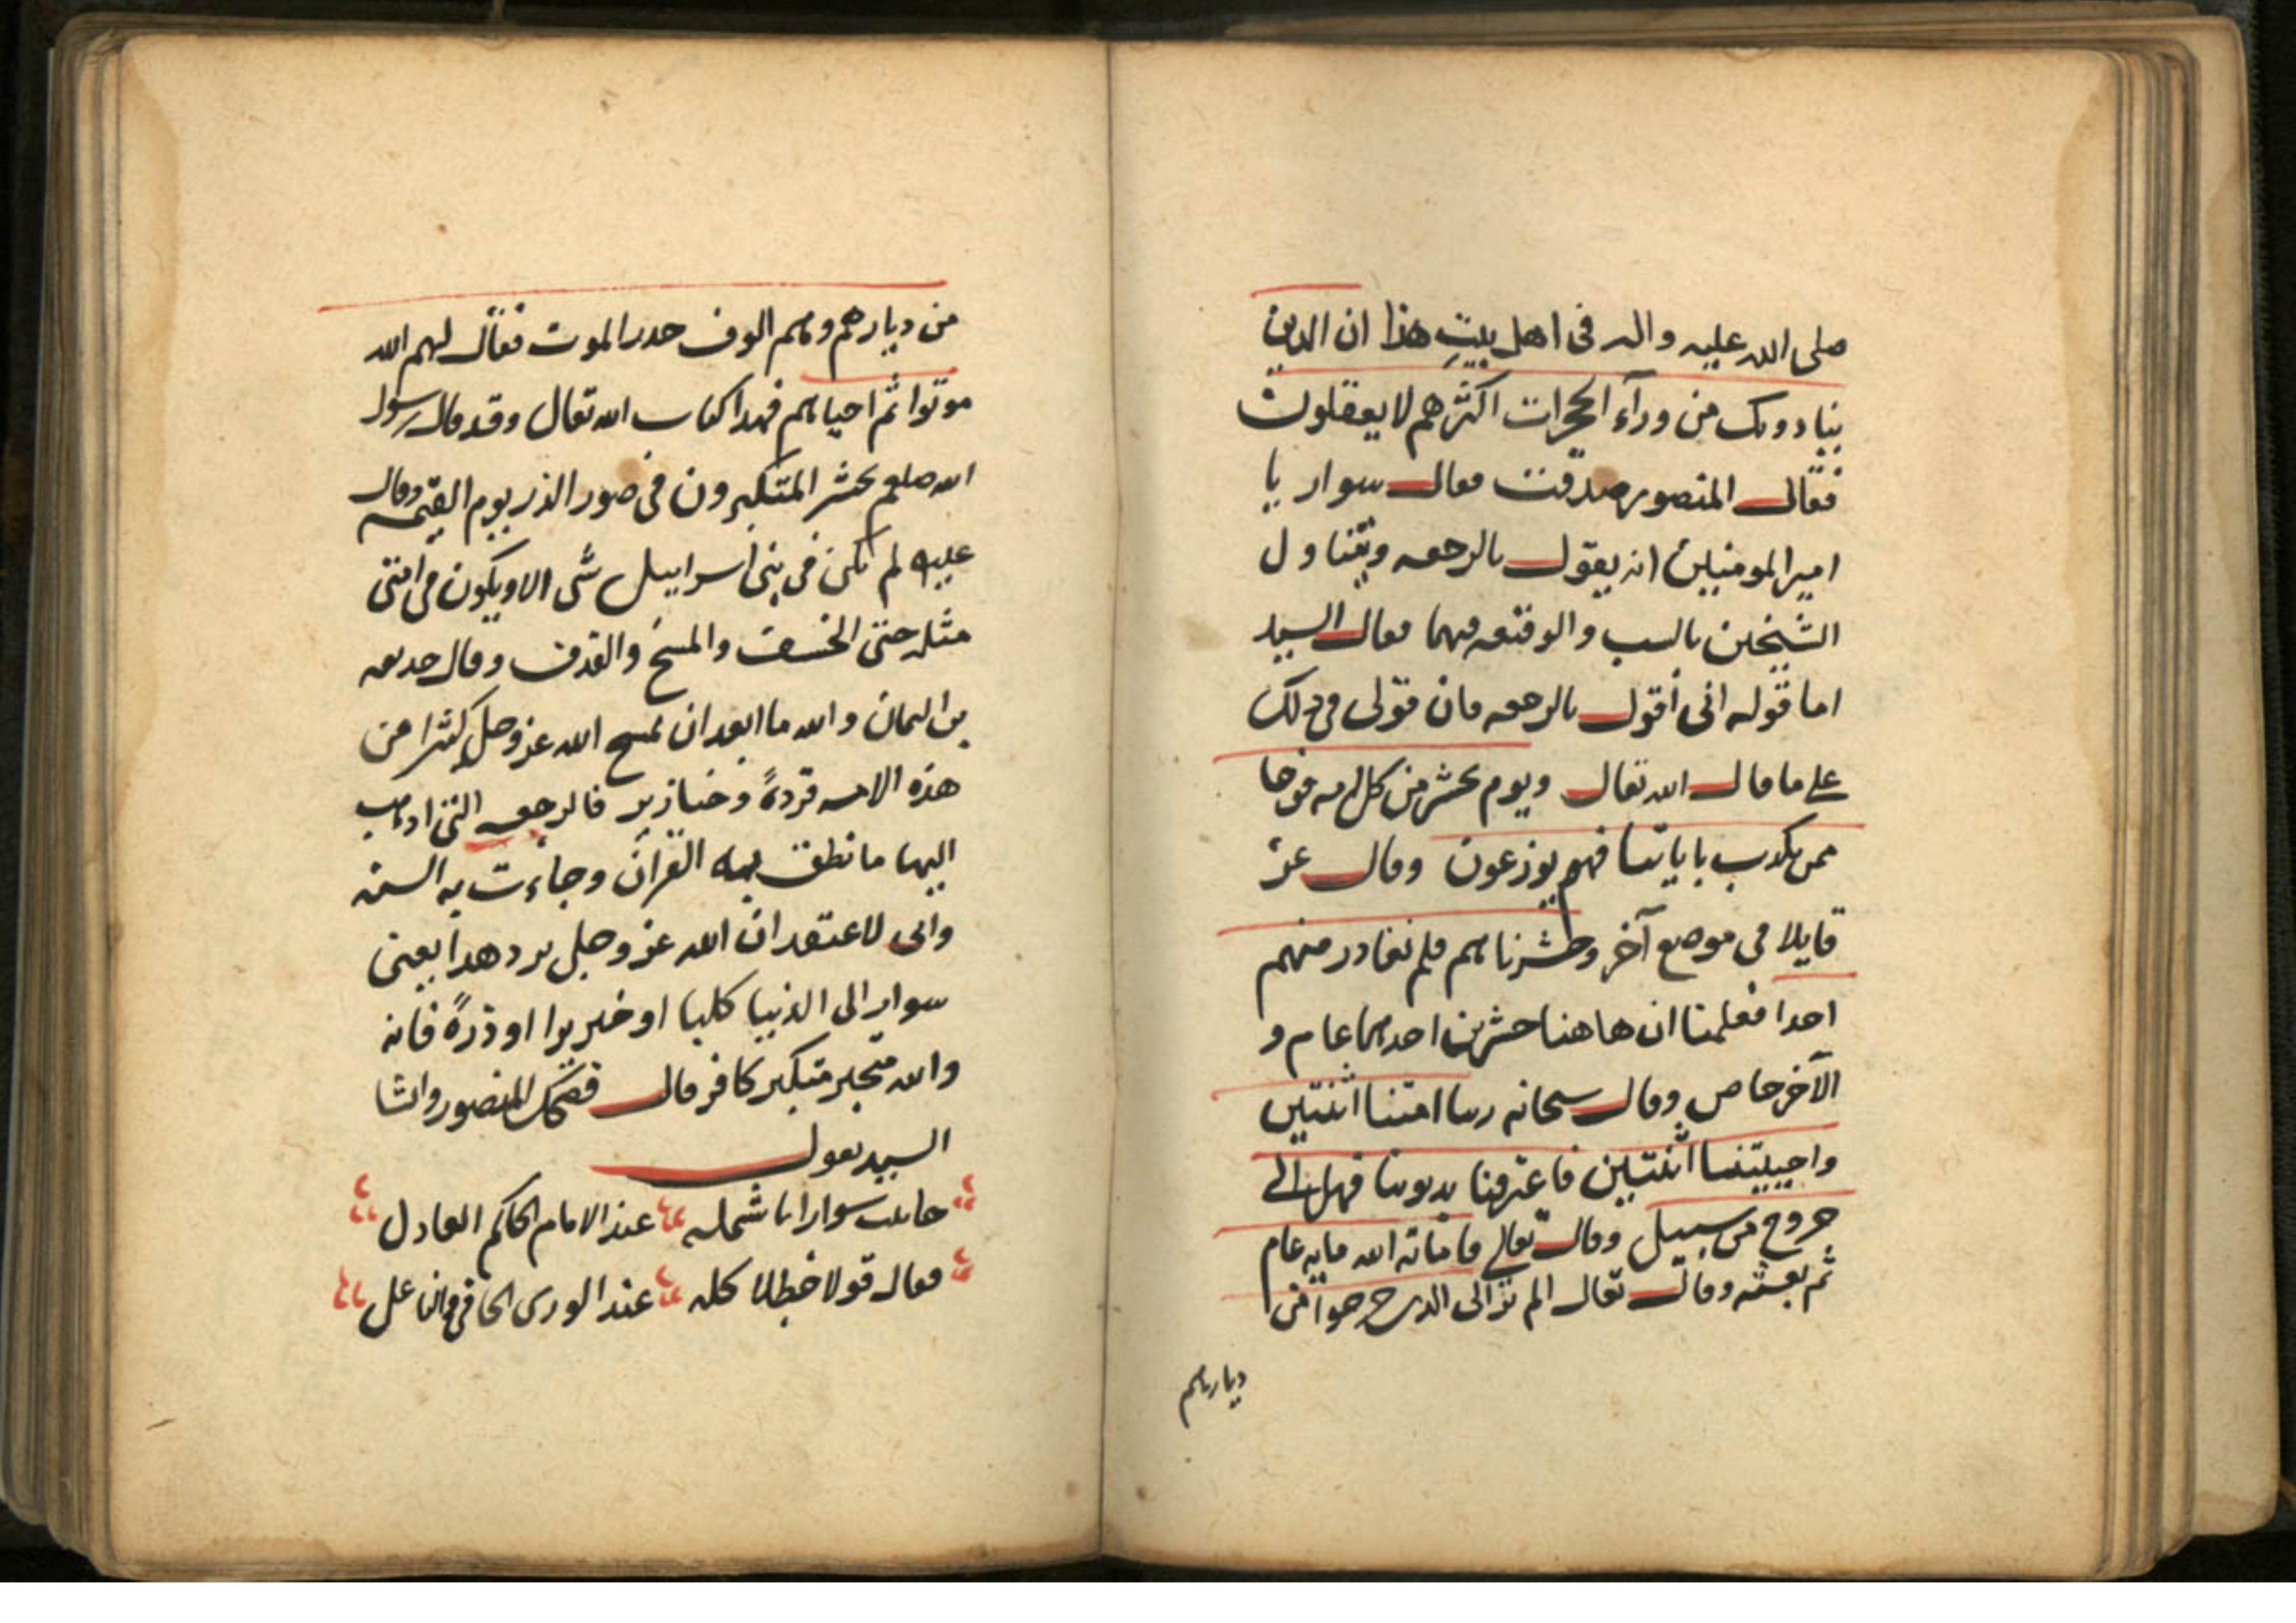 صلى الله عليه واله فى اهل بيت هذا ان الذين
ينادونك من ورآء الحجرات اكثرهم لا يعقلون
فقال المنصور صدقت فقال سوار يا
امير المومنين انه يقول بالرجعه ويتناول
الشيخين بالسب والوقيعه فيهما فقال السيد
اما قوله انى أقول بالرجعه فان قولى فى ذلك
على ما قال الله تعالى ويوم نحشر من كل امه فوجا
ممن يكذب باياتنا فهم يوزعون وقال عز
قايلا فى موضع آخر وحشرناهم فلم نغادر منهم
احدا فعلمنا ان هاهنا حشرين احدهما عام و
الآخر خاص وقال سبحانه ربنا امتنا اثنتين
واحييتنا اثنتين فاعترفنا بذنوبنا فهل الى
خروج من سبيل وقال تعالى فاماته الله مايه عام
ثم بعثه وقال تعالى الم تر الى الذين خرجوا من
ديارهم
من ديارهم وهم الوف حذر الموت فقال لهم الله
موتوا ثم احياهم فهذا كتاب الله تعالى وقد قال رسول
الله صلعم يحشر المتكبرون فى صور الذر يوم القيمه وقال
عليه لم يكن فى بنى اسراييل شى الا ويكون فى امتى
مثله حتى الخسف والمسخ والقذف وقال حذيفه
بن اليمان والله ما ابعد ان يمسح الله عز وجل كثيرا من
هذه الامه قردةً وخنازير فالرجعه التى اذهب
اليها ما نطق به القرآن وجاءت به السنه
وانى لاعتقد ان الله عز وجل يرد هذا يعنى
سوار الى الدنيا كلبا او خنزيرا او ذرةً فانه
والله متجبر متكبر كافر قال فضحك المنصور وانشا
السيد يقول
جاثيت سوارا ابا شمله عند الامام الحاكم العادل
فقال قولا خطلا كله عند الورى الحافى والناعل